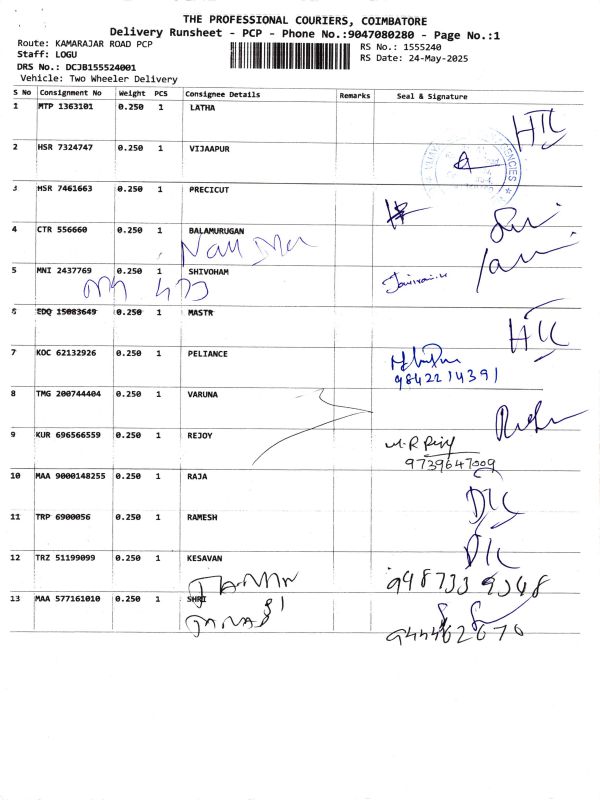 THE PROFESSIONAL COURIERS, COIMBATORE
Delivery Runsheet - PCP - Phone No.:9047080280 - Page No.:1
Route: KAMARAJAR ROAD PCP
RS No.: 1555240
Staff: LOGU
RS Date: 24-May-2025
DRS No.: DCJB155524001
Vehicle: Two Wheeler Delivery
S No Consignment No Weight PCS Consignee Details Remarks Seal & Signature
1 MTP 1363101 0.250 1 LATHA
2 HSR 7324747 0.250 1 VIJAAPUR
AGENCIES
3 HSR 7461663 0.250 1 PRECICUT
4 CTR 556660 0.250 1 BALAMURUGAN
5 MNI 2437769 0.250 1 SHIVOHAM
6 EDQ 15083649 0.250 1 MASTR
7 KOC 62132926 0.250 1 PELIANCE
9842214391
8 TMG 200744404 0.250 1 VARUNA
9 KUR 696566559 0.250 1 REJOY
9739647009
10 MAA 9000148255 0.250 1 RAJA
11 TRP 6900056 0.250 1 RAMESH
12 TRZ 51199099 0.250 1 KESAVAN
13 MAA 577161010 0.250 1 SHRI